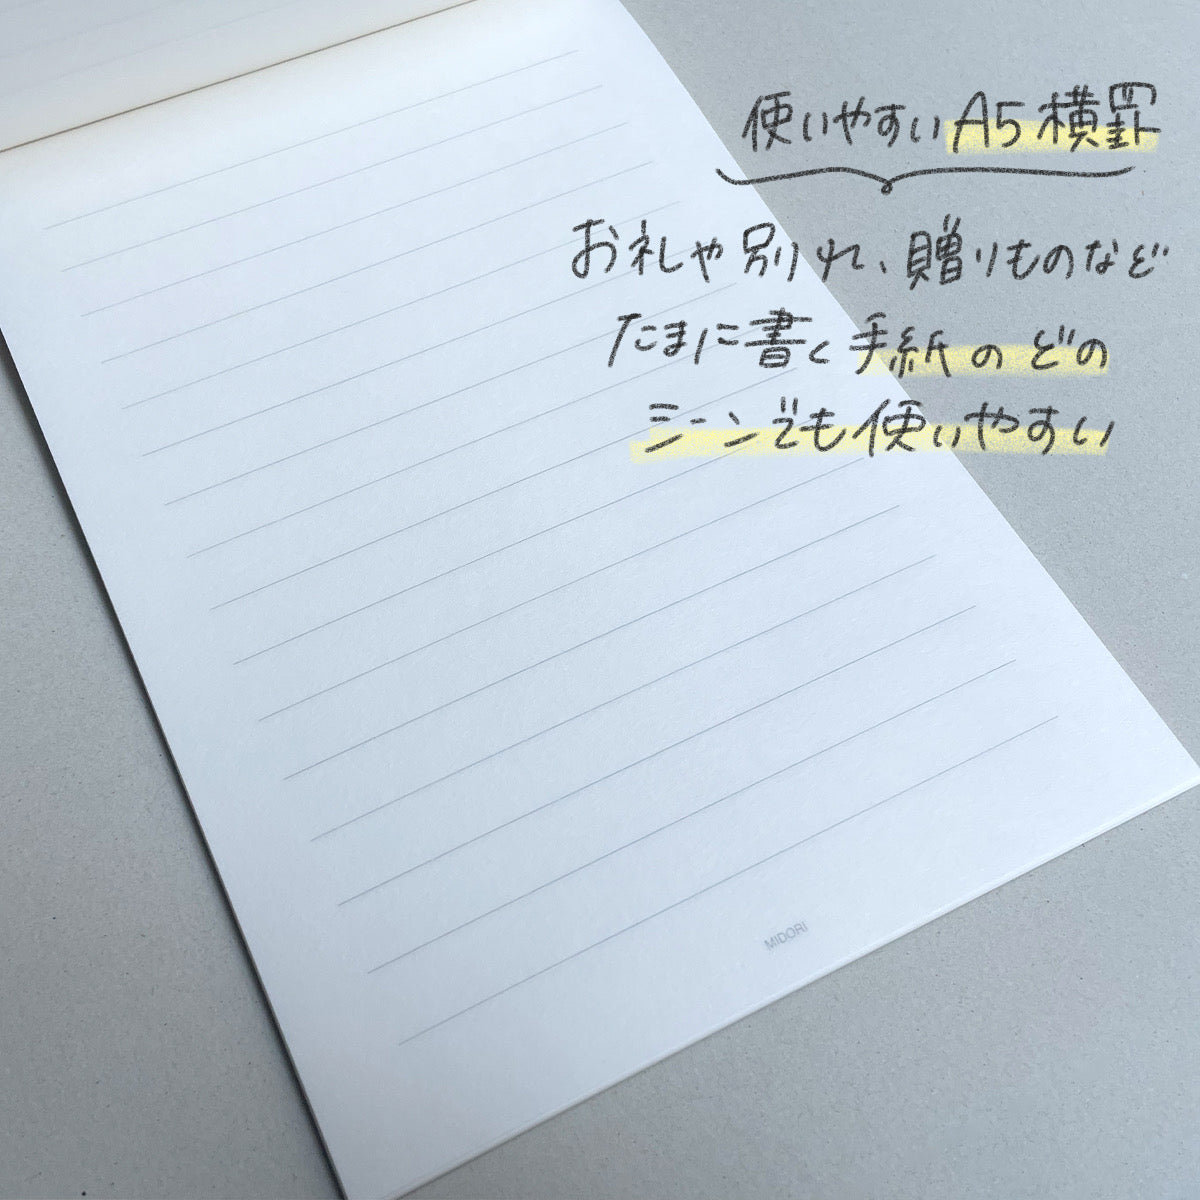 使いやすいA5横罫
お礼や別れ、贈りものなど
たまに書く手紙のどの
シーンでも使いやすい
MIDORI